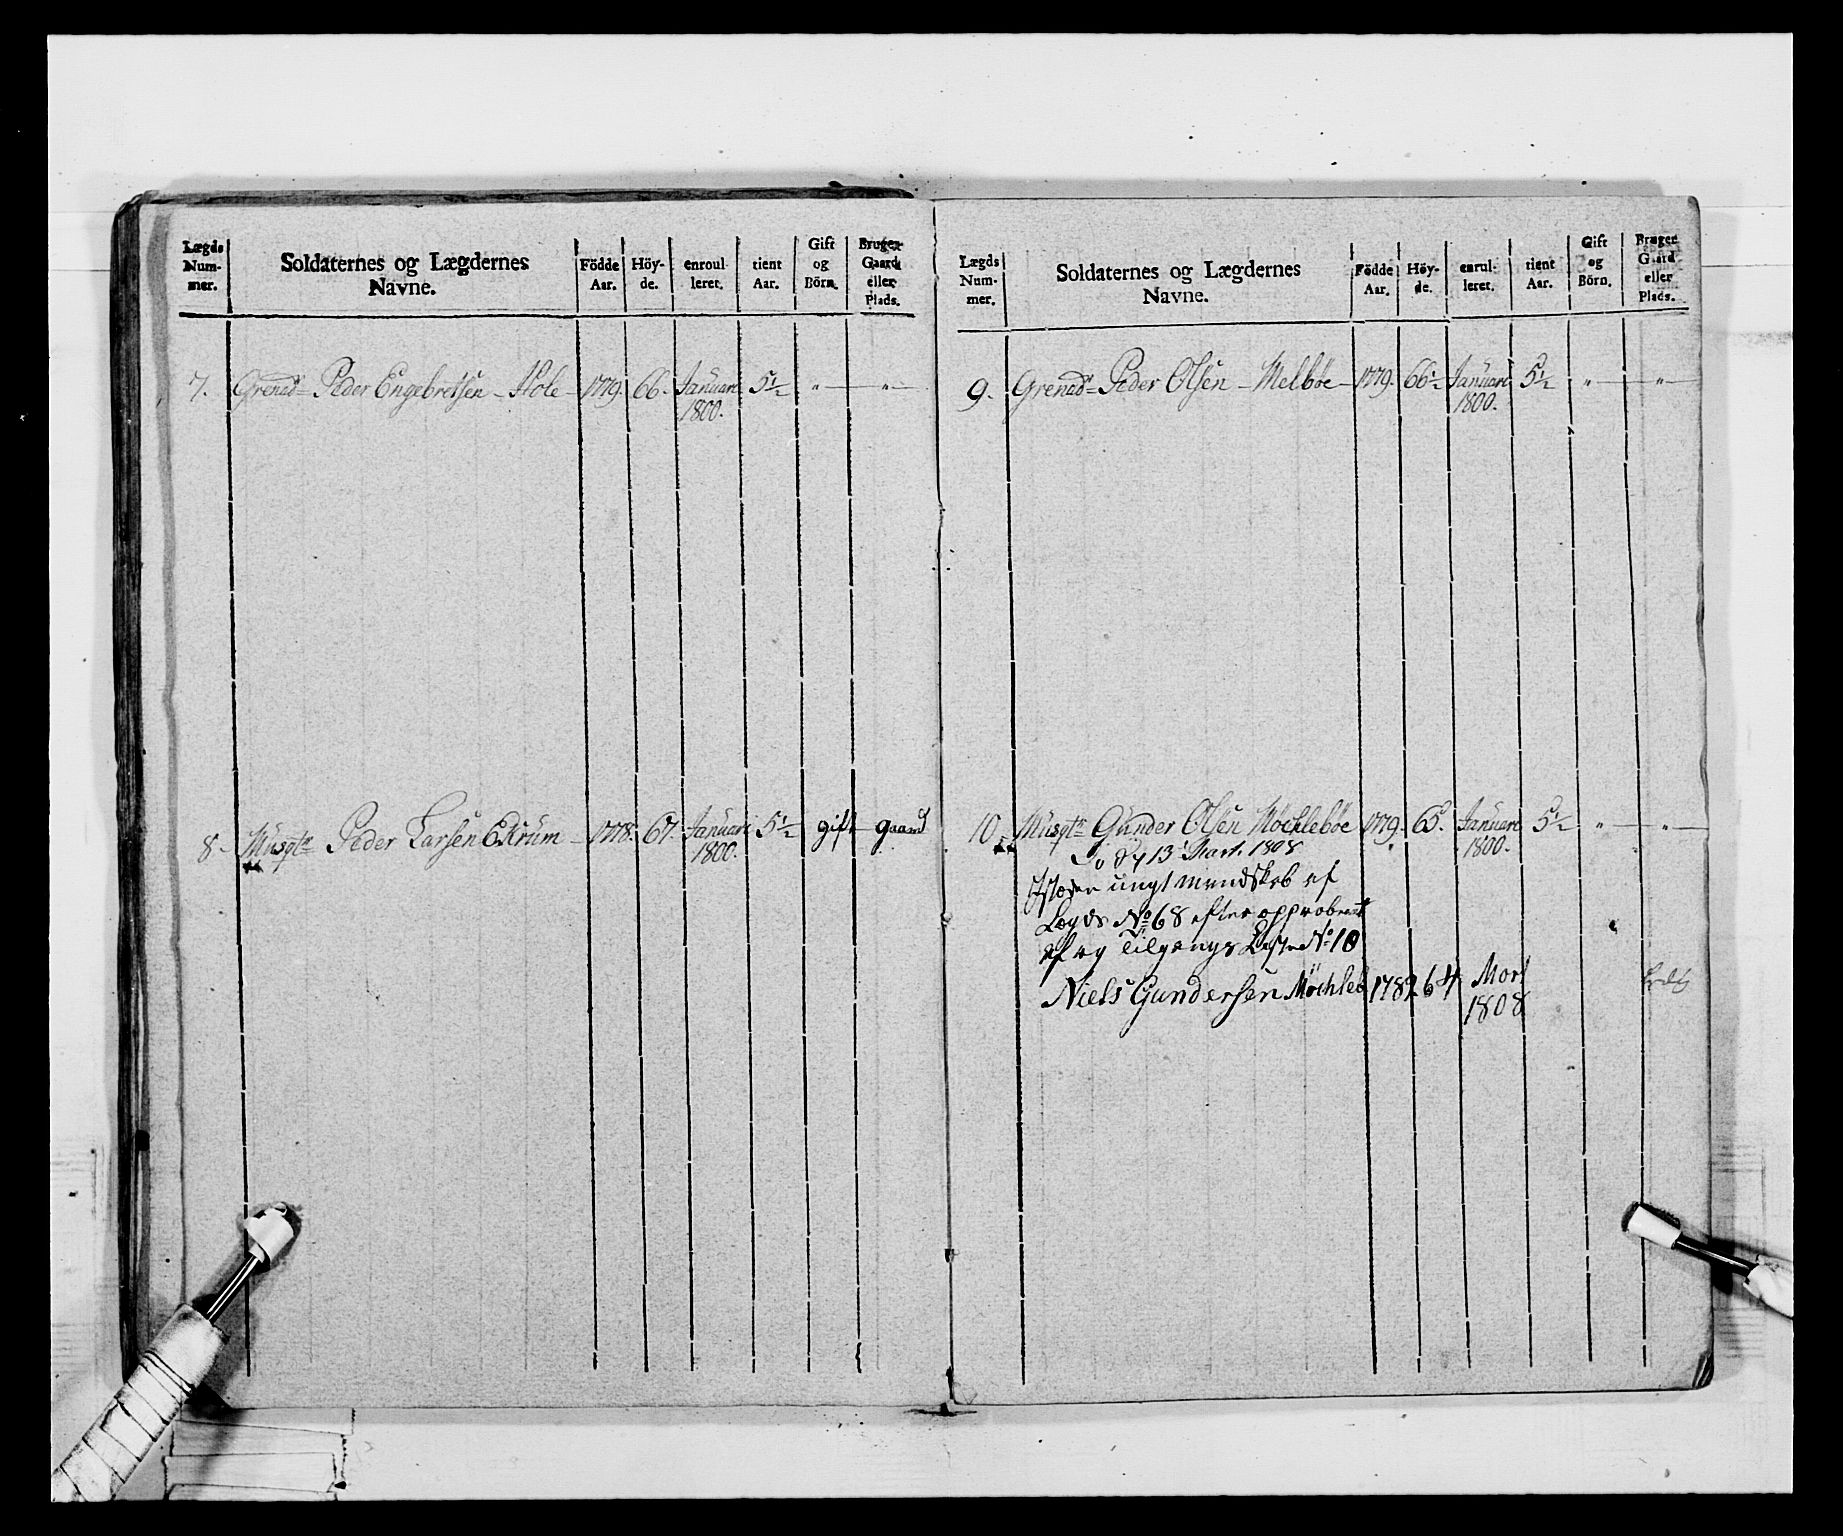 Lægds Num- mer. Soldaternes og Lægdernes Navne. Födde Aar. Höy- de. enroul- leret. tient Aar. Gift og Börn. Bruger Gaard eller Plads.
7. Grenadr Peder Engebretsen - Hole - 1779. 66. Januari 5½ " — "
1800.
8 - Musqtr Peder Larsen Ekrum - 1778. 67. Januari 5½ gift gaard
1800.
Lægds Num- mer. Soldaternes og Lægdernes Navne. Födde Aar. Höy- de. enrul- leret. tient Aar. Gift og Börn. Bruger Gaard eller Plads.
9. Grenadr Peder Olsen - Melböe - 1779. 66½ Januari 5½ " — "
1800.
10. Musqtr Gunder Olsen Möchleböe 1779. 65. Januari 5½ " — "
1800.
13 Mart. 1808
ungt mandskab af
Lægds No 68 efter approberet
af og Tilgangs Liste No 10
Niels Gundersen Möchleb 1782 64 Mart
1808